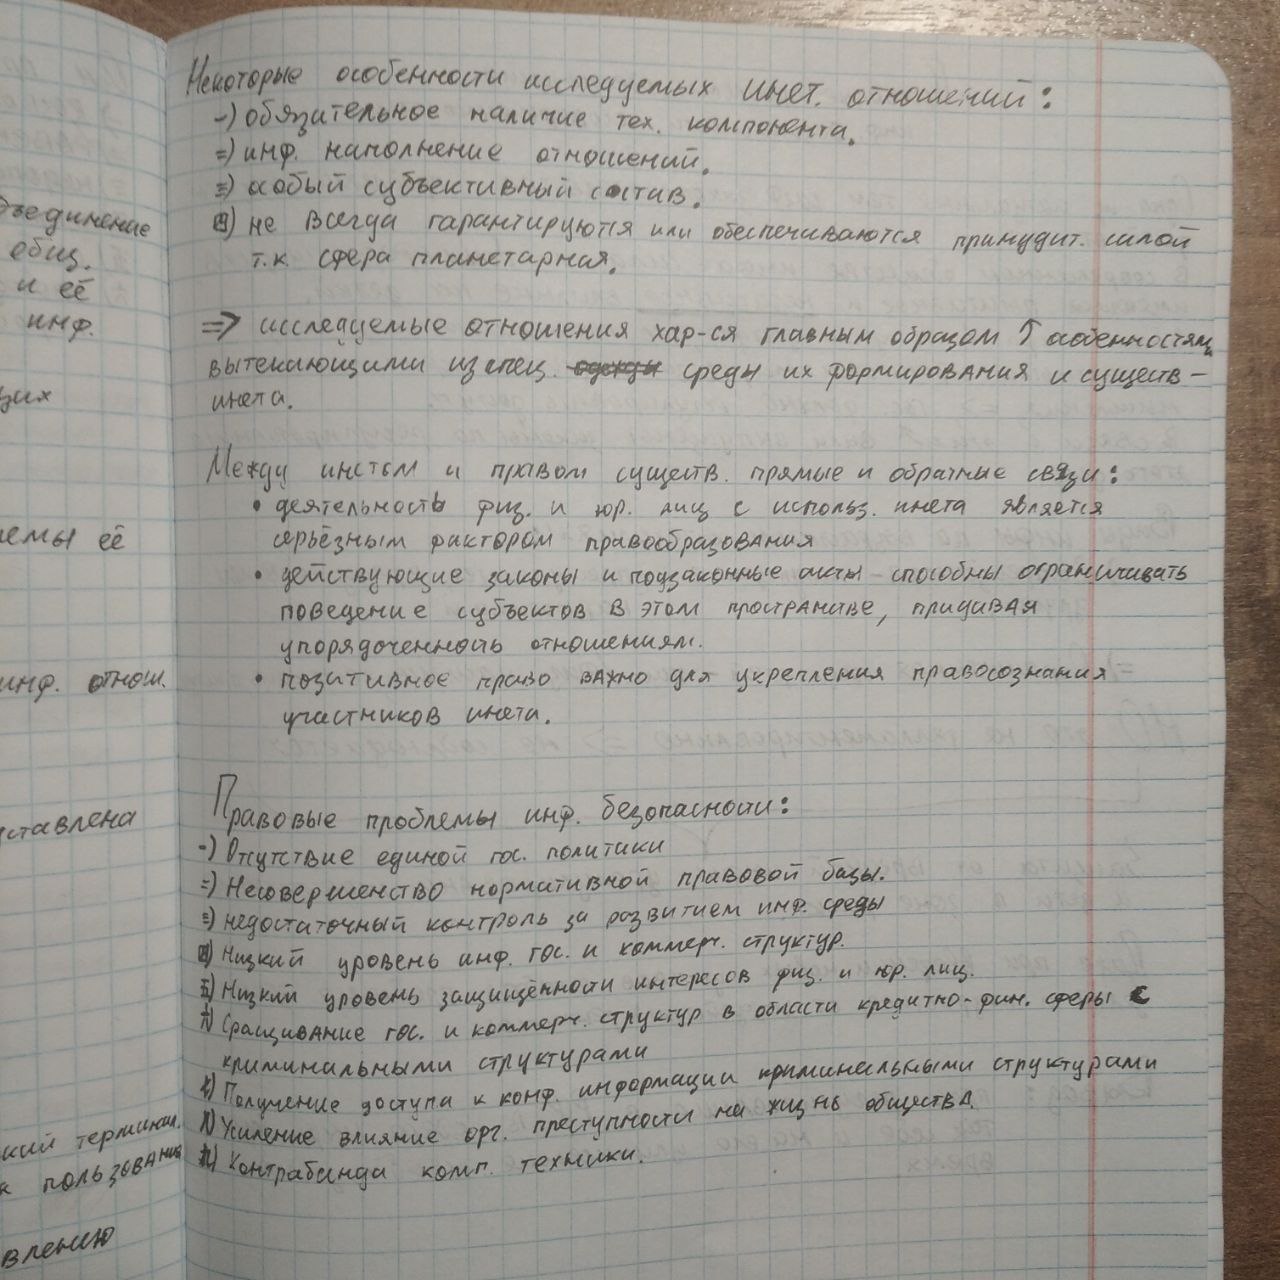 Некоторые особенности исследуемых инет. отношений:
-) обязательное наличие тех. компонента.
=) инф. наполнение отношений.
≡) особый субъективный состав.
не всегда гарантируются или обеспечиваются принудит. силой
т.к. сфера планетарная.
=> исследуемые отношения хар-ся главным образом ↑ особенностям
вытекающими из спец. среды их формирования и существ-
инета.
Между инетом и правом существ. прямые и обратные связи:
• деятельность физ. и юр. лиц с использ. инета является
серьёзным фактором правообразования
• действующие законы и подзаконные акты способны ограничивать
поведение субъектов в этом пространстве, придавая
упорядоченность отношениям.
• позитивное право важно для укрепления правосознания
участников инета.
Правовые проблемы инф. безопасности:
-) Отсутствие единой гос. политики
=) Несовершенство нормативной правовой базы.
≡) недостаточный контроль за развитием инф. среды
Низкий уровень инф. гос. и коммерч. структур.
Низкий уровень защищённости интересов физ. и юр. лиц.
Сращивание гос. и коммерч. структур в области кредитно-фин. сферы с
криминальными структурами
Получение доступа к конф. информации криминальными структурами
Усиление влияние орг. преступности на жизнь общества.
Контрабанда комп. техники.
ъединение
общ.
и её
инф.
щих
емы её
инф. отнош.
ставлена
кий терминал.
к пользования
влению